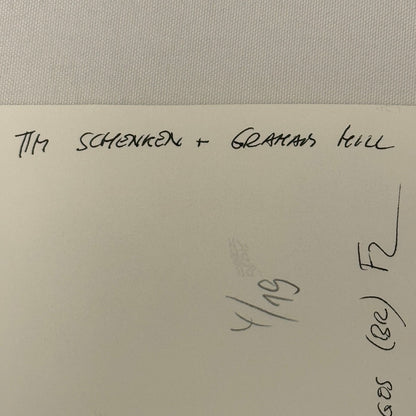 TIM SCHENKEN + GRAHAM HILL
4/19
GOS (BR) F2